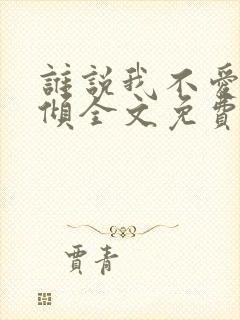 誰說我不愛
傾全文免費
賈青